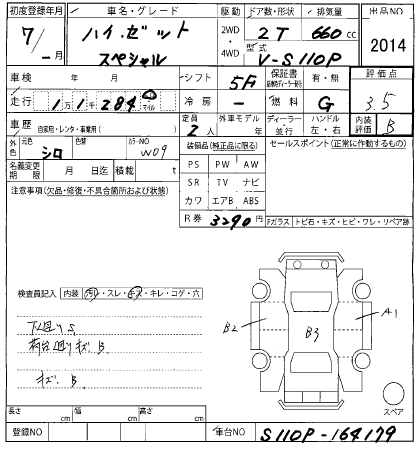 初度登録年月 車名・グレード 駆動 ドア数・形状 排気量 出品NO
7/-月 ハイ・ゼット スペシャル 2WD・4WD 2T 660cc 2014
型式 V-S110P
車検 年 月 シフト 5F 保証書 有・無 評価点
走行 1万1千284 キロ マイル 冷房 - 燃料 G 3.5
車歴 自家用・レンタ・事業用( ) 定員 2人 外車モデル 年 ディーラー・並行 ハンドル 左・右 内装評価 B
外色 元色 シロ 色替 カラーNO W09 装備品(純正品に限る) セールスポイント(正常に作動するもの)
名義変更期限 月 日迄 積載 t PS PW AW
注意事項(欠品・修復・不具合箇所および状態) SR TV ナビ
カワ エアB ABS
R券 3290円 Fガラス トビ石・キズ・ヒビ・ワレ・リペア跡
検査員記入 内装 汚レ・スレ・キズ・キレ・コゲ・穴
下廻りS
荷台廻りキズ、B
キズ、B
B2 B3 A1
スペア
長さ cm 幅 cm 高さ cm
登録NO 車台NO S110P-164179